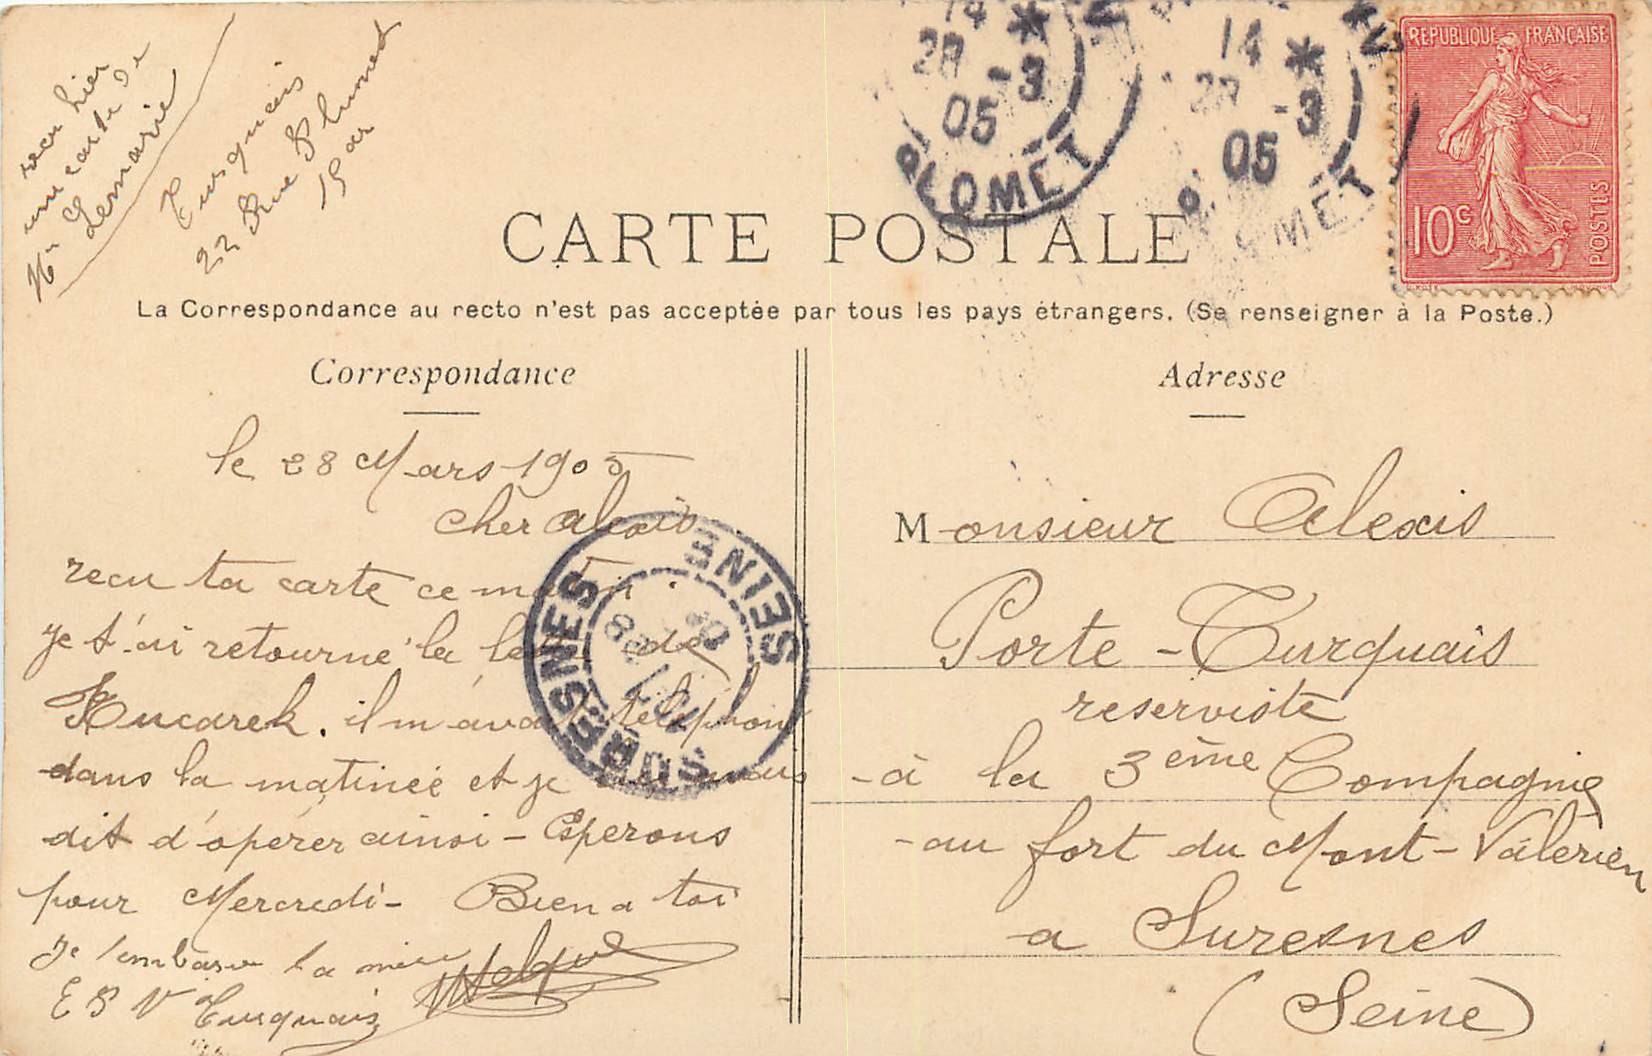 reçu hier
une carte de
Mr Lemarié
Turquais
22 Rue Blomet
15 ar
14 *
28 -3
05
BLOMET
14 *
28 -3
05
XV
REPUBLIQUE FRANÇAISE
10c
POSTES
CARTE POSTALE
La Correspondance au recto n'est pas acceptée par tous les pays étrangers. (Se renseigner à la Poste.)
Correspondance
le 28 Mars 1905
Cher Alexis
recu ta carte ce matin.
je t'ai retourné la de
Kucarek. il m'avait téléphoné
dans la matinée et je
dit d'opérer ainsi - Esperons
pour Mercredi - Bien a toi
Je t'embasse ta mère
E P V Turquais
SURESNES
SEINE
Adresse
Monsieur Alexis
Porte-Turquais
reserviste
à la 3eme Compagnie
au fort du Mont-Valérien
a Suresnes
(Seine)